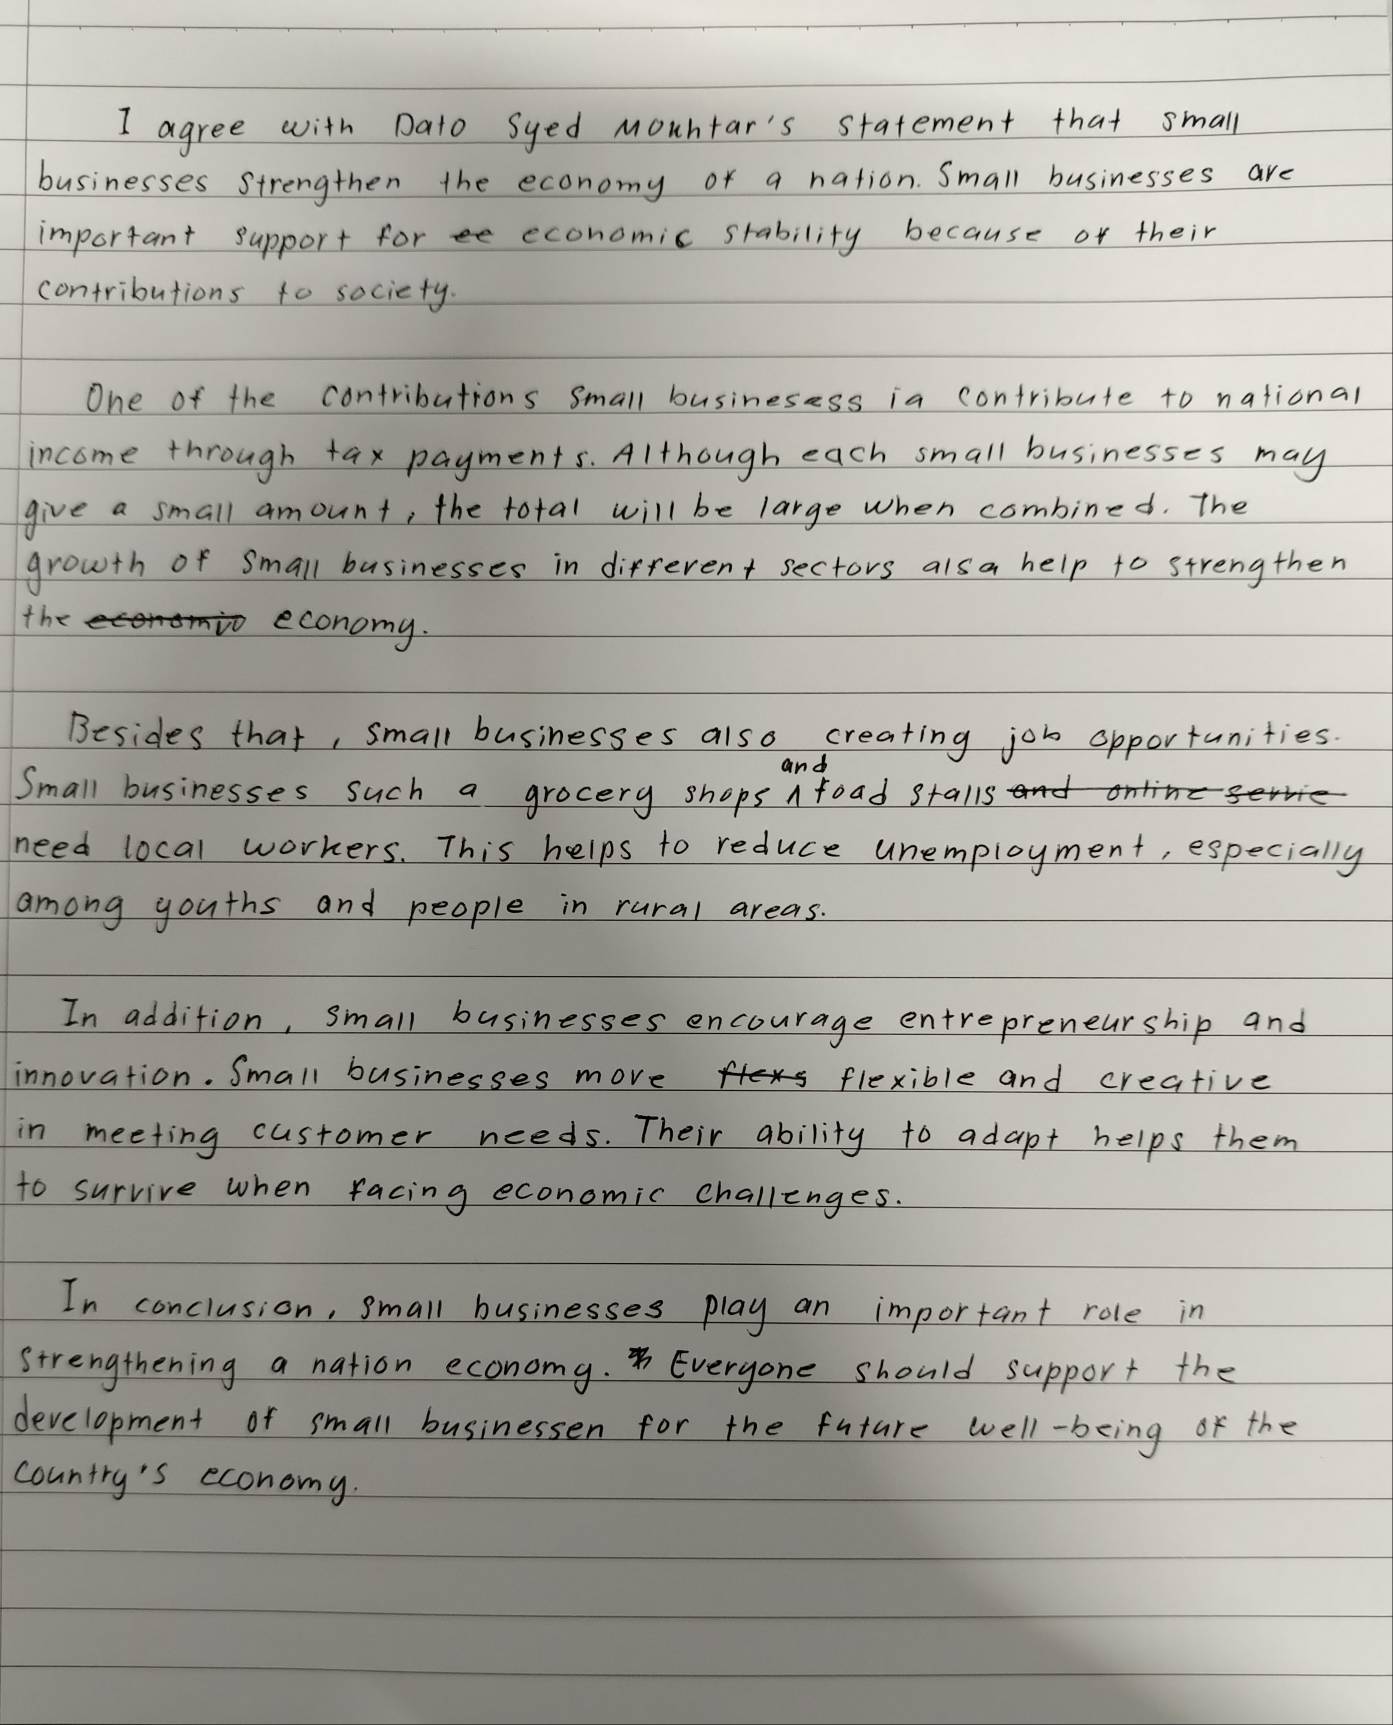 I agree with Dato Syed Moukhtar's statement that small
businesses strengthen the economy of a nation. Small businesses are
important support for ee economic stability because of their
contributions to society.
One of the contributions small businesess ia contribute to national
income through tax payments. Although each small businesses may
give a small amount, the total will be large when combined. The
growth of small businesses in different sectors alsa help to strengthen
the economic economy.
Besides that, small businesses also creating job opportunities.
and
Small businesses such a grocery shops ∧ food stalls and online servie
need local workers. This helps to reduce unemployment, especially
among youths and people in rural areas.
In addition, small businesses encourage entrepreneurship and
innovation. Small businesses more flexs flexible and creative
in meeting customer needs. Their ability to adapt helps them
to survive when facing economic challenges.
In conclusion, small businesses play an important role in
strengthening a nation economy. Everyone should support the
development of small businessen for the future well-being of the
country's economy.